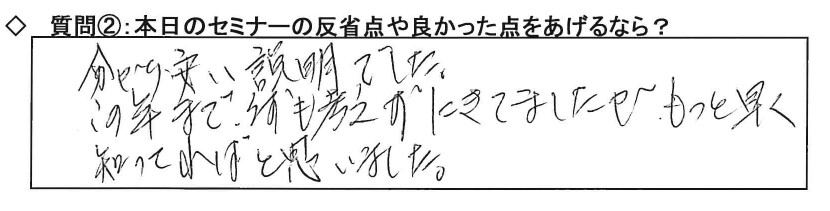 ◇ 質問②:本日のセミナーの反省点や良かった点をあげるなら?
分かり安い説明でした。
この年まで、何も考えずにきてましたが、もっと早く
知ってればと思いました。